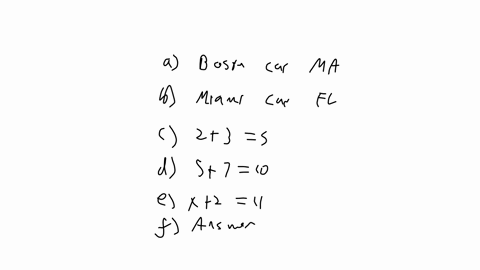 a) Boston car MA
b) Miami car FL
c) 2+3 =5
d) 5+7 =10
e) x+2 =11
f) Answer